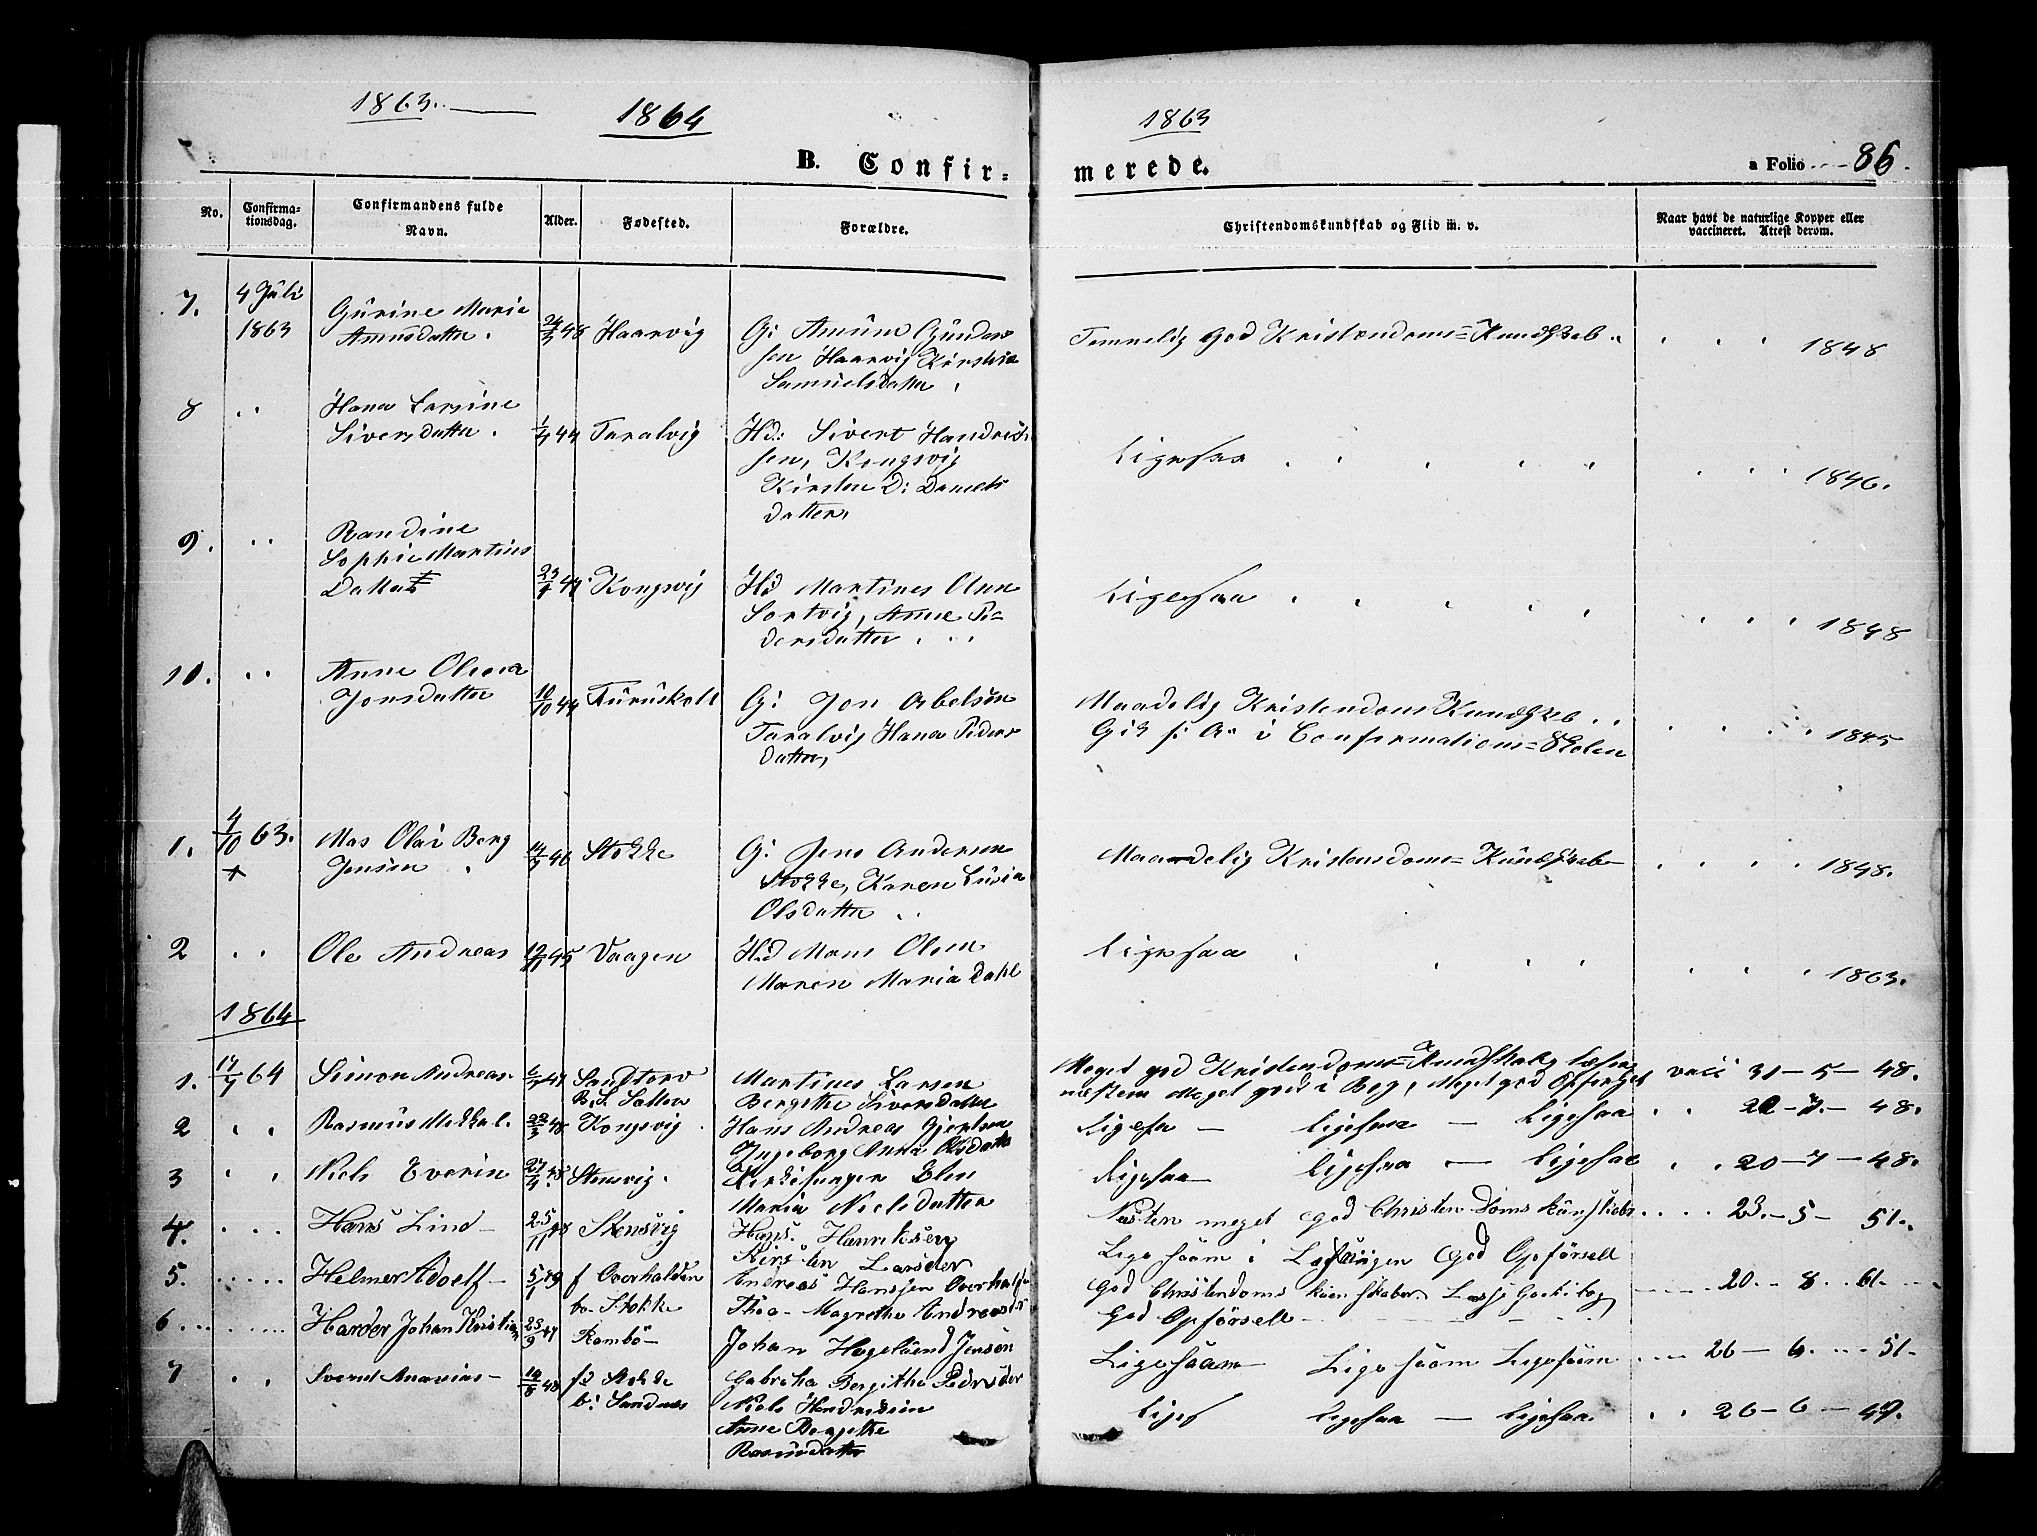 1863.
1864
1863
B. Confir-
merede.
a Folio 86.
No.
Confirma-
tionsdag.
Confirmandens fulde
Navn.
Alder.
Fødested.
Forældre.
Christendomskundskab og Flid m. v.
Naar havt de naturlige Kopper eller
vaccineret. Attest derom.
7. 4 Juli
1863
Gurine Marie
Amundsdatter.
48 Haarvig
G:
Haarvig Kirstine
Samuelsdatter
Temmelig god Kristendoms=Kundskab
1848
8
Hana Larsine
Siversdatter.
44 Taralvig
Hd: Sivert Handrik
sen, Kongsvig
Kirsten D: Daniels
datter,
Ligesaa
1846.
9.
Randine
Sophie Martines
Datter
Kongsvig
Hd Martines
Sortvig, Anne Pe=
dersdatter
Ligesaa
1848
10.
Anne Olena
Jonsdatter
10/10 44 Furuskalt
G: Jon Abelsen
Taralvig Hana Peders
datter,
Maadelig Kristendoms Kundskab
Gik i Confirmations=Skolen
1845
1. 4/10 63.
Mas Olai Berg
Jensen
46 Stokke
G: Jens Andersen
Stokke, Karen Lusia
Olsdatter
Maadelig Kristendoms=Kundskab
1848.
2
Ole Andreas
45 Vaagen
Hd Mons Olsen
Maren Maria Dahl
Ligesaa
1863.
1864
1. 64 Simon Andreas.
47 Sandtorv
Martines Larsen
Bergithe Siversdatter
Meget god Kristendoms=Kundskab
næsten meget god i Bog, meget god Opførsel
vacc 31-5-48.
2
Rasmus Mekkal.
48 Kongsvig
Hans Andreas Gjertsen
Ingeborg Anna Olsdatter
Ligesa — Ligesaa — Ligesaa
22-7-48.
3
Niels Everin
Stensvig.
Kirkesanger Elen
Maria Nielsdatter
Ligesaa Ligesaa — Ligesaa
20-7-48.
4.
Hans Lind
25/11 48 Stensvig
Hans Henriksen
Kirsten Larsdter
Næsten meget god Christendoms
Lige saam i Læsningen God Opførsell
23.-5-51.
5.
Helmer Adolf
5/1 49 f Overhalden
bo Stokke
Andreas Hanssen Overhal
Thea Magrethe Andreasdtr
God Christendoms
God Opførsell
20.-8.-61.
6
Harder Johan Kristian
23/9 47 Rambö
Johan Hagelund Jensen
Gabreha Bergitha Pedersdtr
Ligesaam Lige saam Ligesaam
26-6-51.
7
Svend Ananias
48 fd Stokke
b: Sandnes
Niels Hendriksen
Anne Bergethe
Rasmusdatter
Liges Ligesaa — Ligesaa
26-6-49.